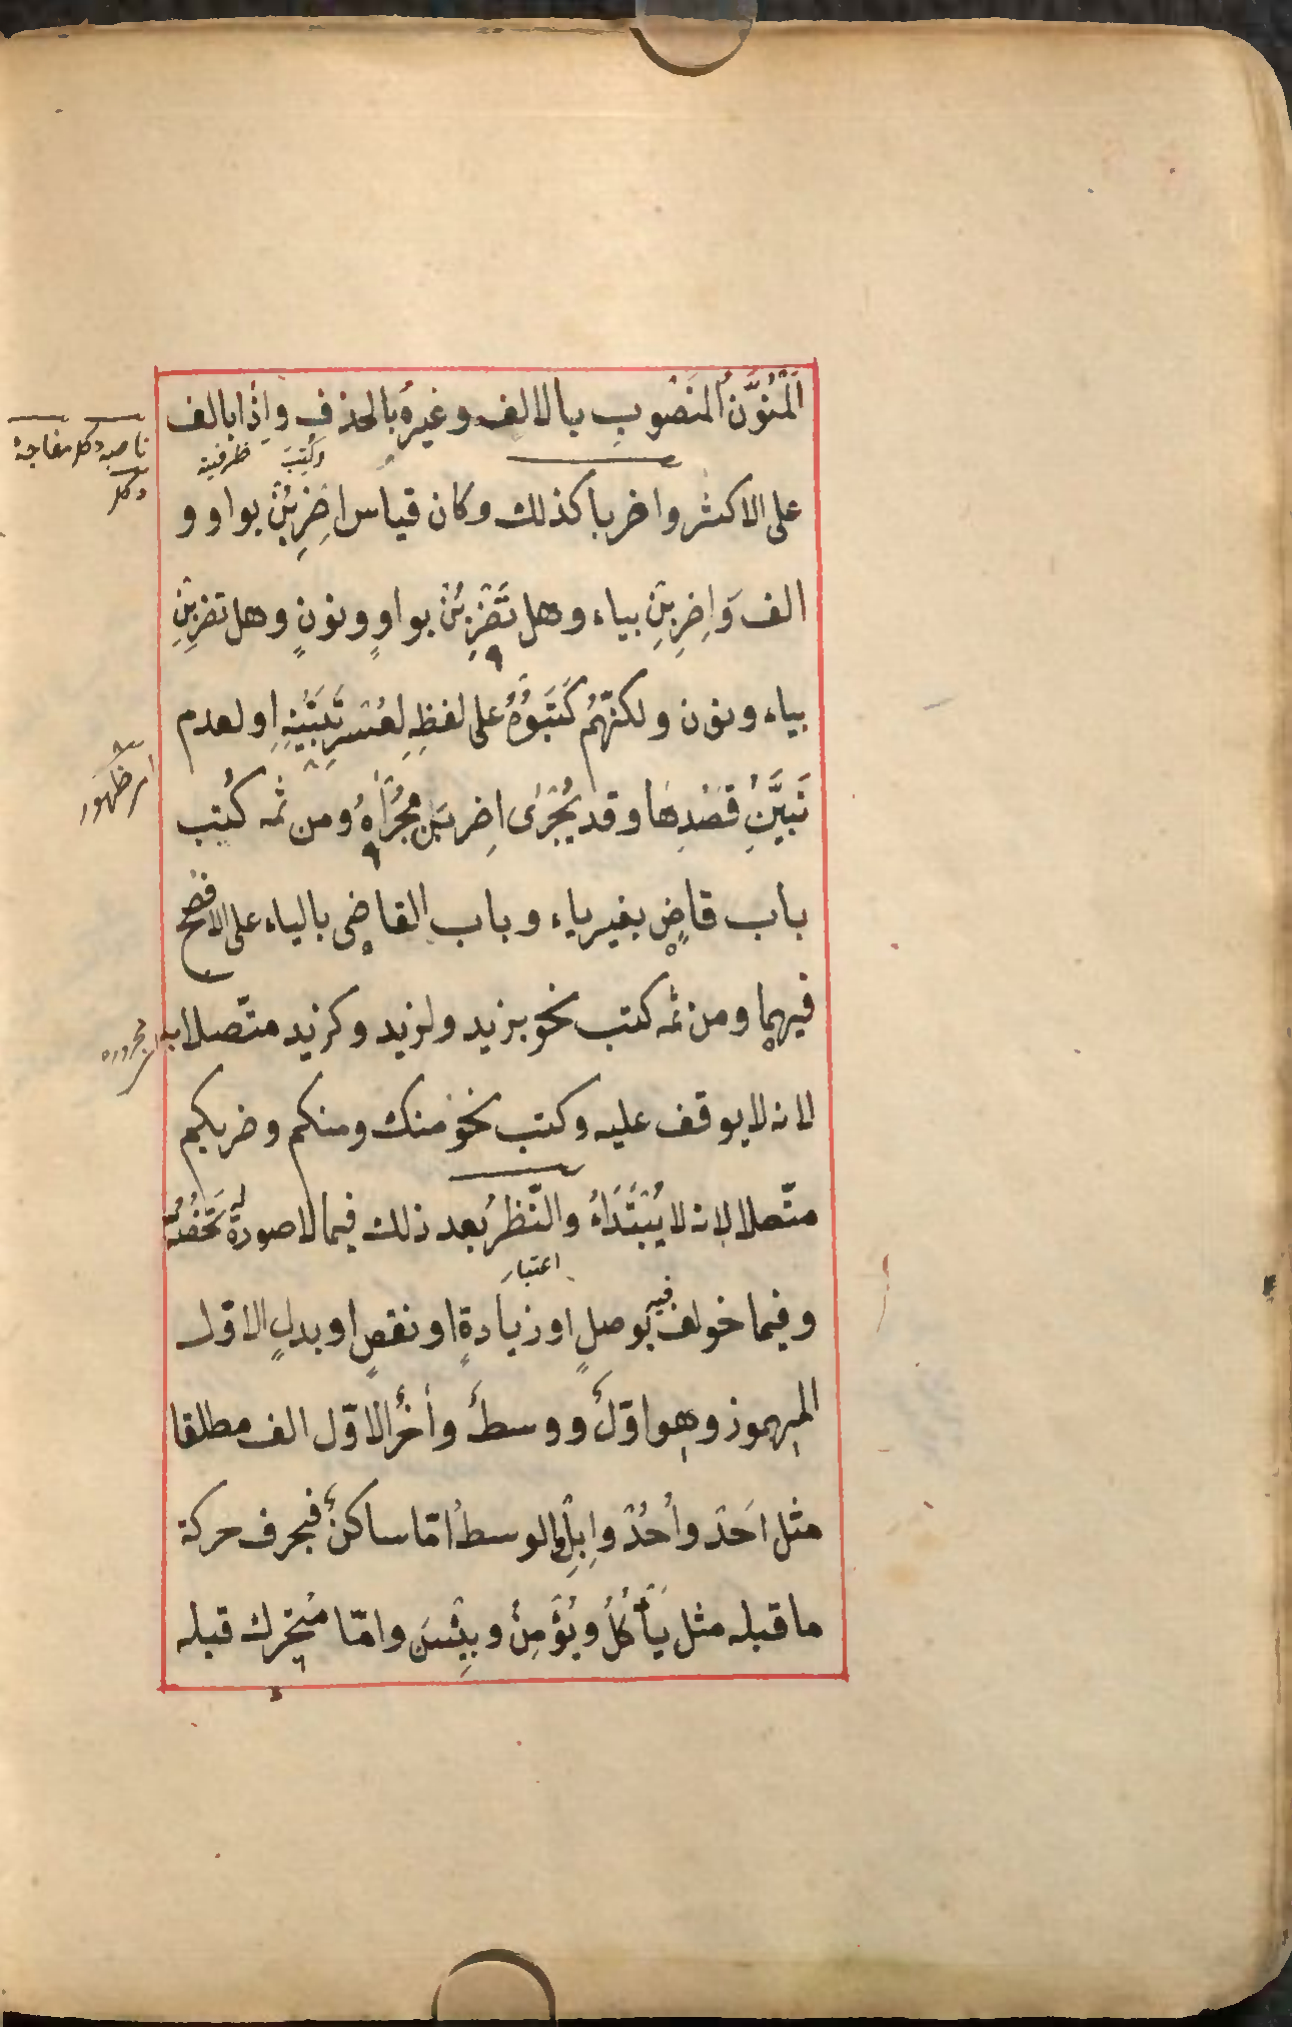 اَلْمُنَوَّنُ الْمَنْصُوبِ بالالِف وغيرهُ بالحذف وإذًا بالف
على الاكثر واضربا كذلك وكان قياس اضربُنْ بواو و
الف وَاِضرِبِنْ بياء وهل تَضْرِبُنْ بواوٍ ونونٍ وهل تضربِنْ
بياء ونون ولكنّهُم كَتَبَوُهُ على لفظِهِ لعُسْرِ تَبَيُّنِهِ او لعدم
تَبَيُّنِ قَصْدِهَا وقد يُجْرٰى اِضربَن مُجْرَاهُ ومن ثمه كُتِب
باب قاضٍ بغير ياء وباب القاضى بالياء على الافصح
فيهما ومن ثمه كتب نحو بزيد ولزيد وكزيد متّصلا به
لانه لا يوقف عليه وكتب نحو منك ومنكم وضربكم
متّصلا لانه لا يُبْتَدَاءُ والنّظرُ بعد ذلك فيما لا صورة له تَخُصُّهُ
وفيما خولف فيه بوصلٍ او زيادةٍ او نقصٍ او بدلٍ الاوّل
المهموز وهو اوّلٌ ووسطٌ وأخرٌ الاوّل الف مطلقا
مثل اَحَدْ واُحُدْ واِبِلْ والوسطُ امّا ساكنٌ فبحرف حركة
ما قبله مثل يَأْكُلُ ويُؤْمِنُ وبِئْسَ وامّا متحرك قبله
وكُتِبَ
ظرفية
اعتبار
ناصبه دكل مفاجئه
دكل
اى ظهور
مجروره